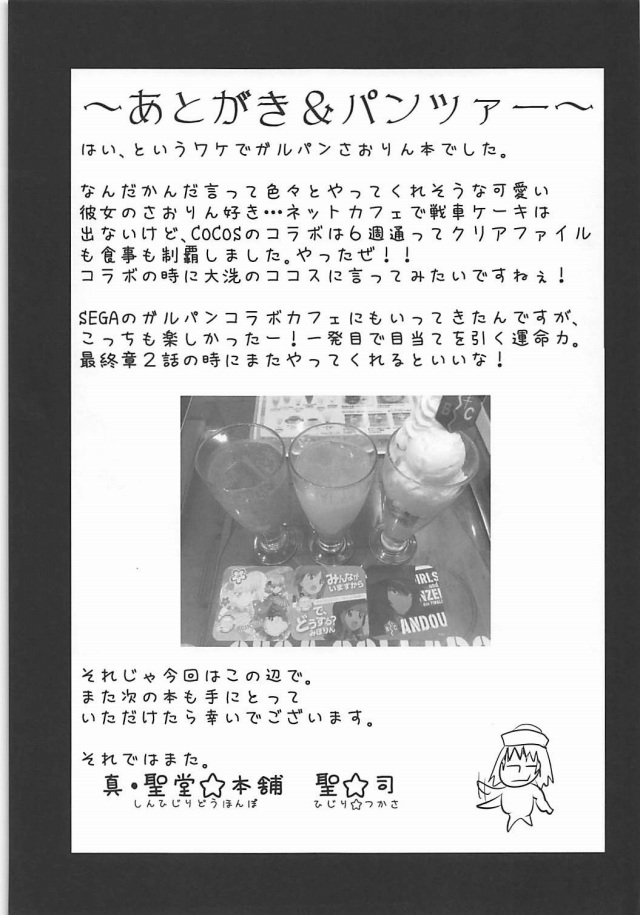 ～あとがき＆パンツァー～
はい、というワケでガルパンさおりん本でした。
なんだかんだ言って色々とやってくれそうな可愛い
彼女のさおりん好き…ネットカフェで戦車ケーキは
出ないけど、COCOSのコラボは６週通ってクリアファイル
も食事も制覇しました。やったぜ！！
コラボの時に大洗のココスに言ってみたいですねぇ！
SEGAのガルパンコラボカフェにもいってきたんですが、
こっちも楽しかったー！一発目で目当てを引く運命力。
最終章２話の時にまたやってくれるといいな！
B C
みんなが
いますから
で、
どうする？
みほりん
GIRLS
und
PANZER
ANDOU
それじゃ今回はこの辺で。
また次の本も手にとって
いただけたら幸いでございます。
それではまた。
真・聖堂☆本舗　聖☆司
しんひじりどうほんぽ　ひじり☆つかさ